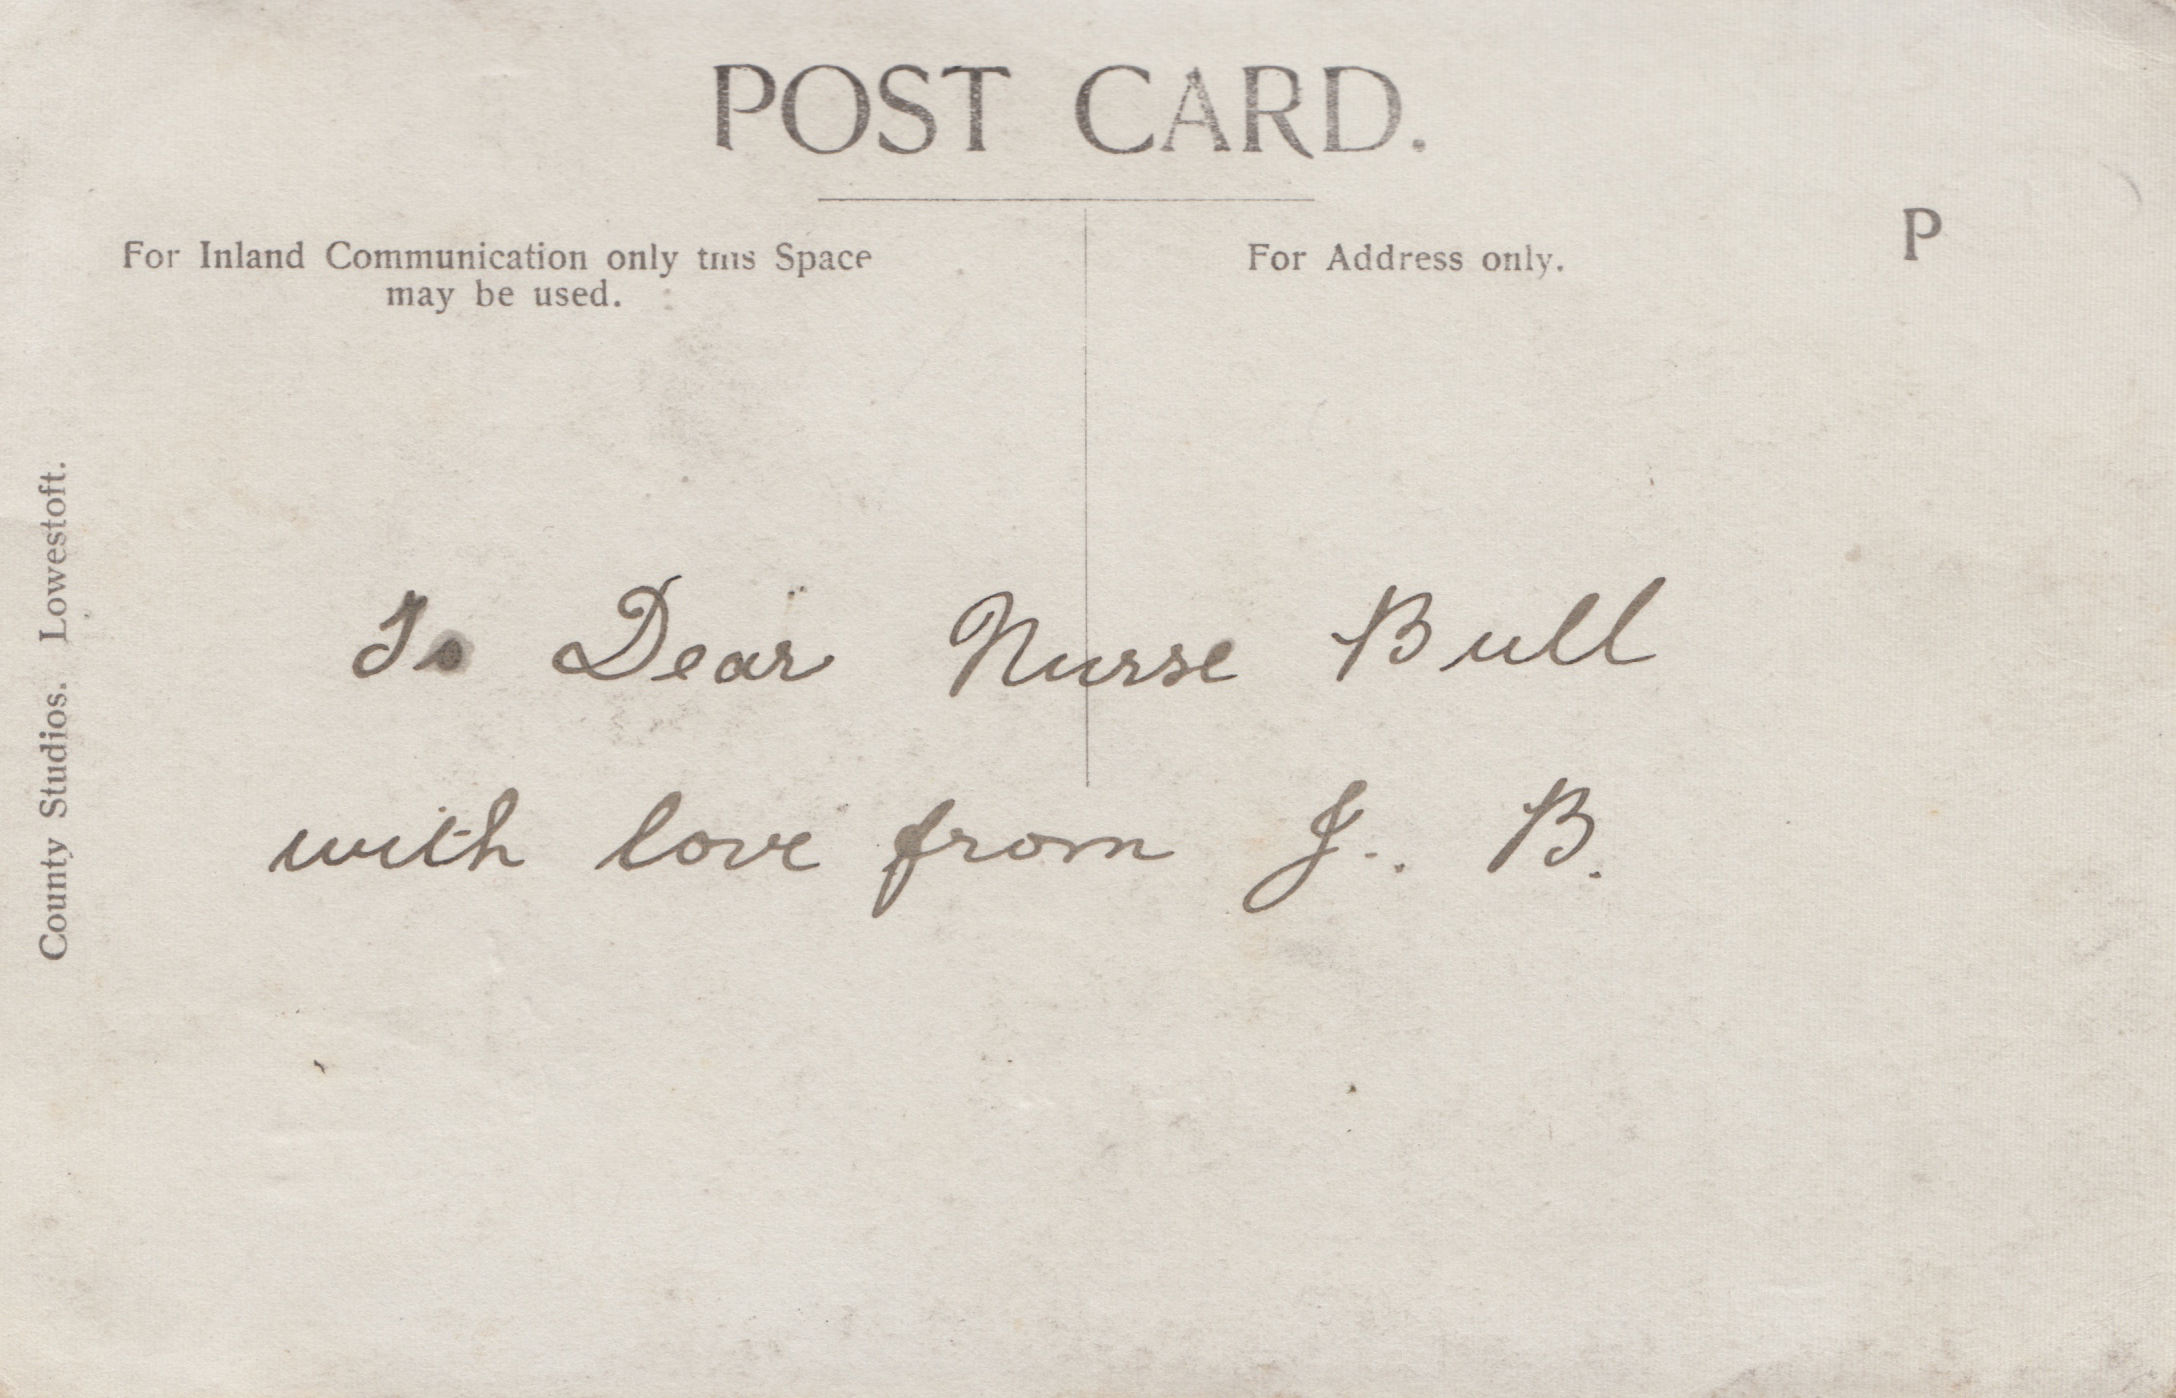 POST CARD.
For Inland Communication only this Space
may be used.
For Address only.
P
County Studios. Lowestoft.
To Dear Nurse Bull
with love from J.. B.